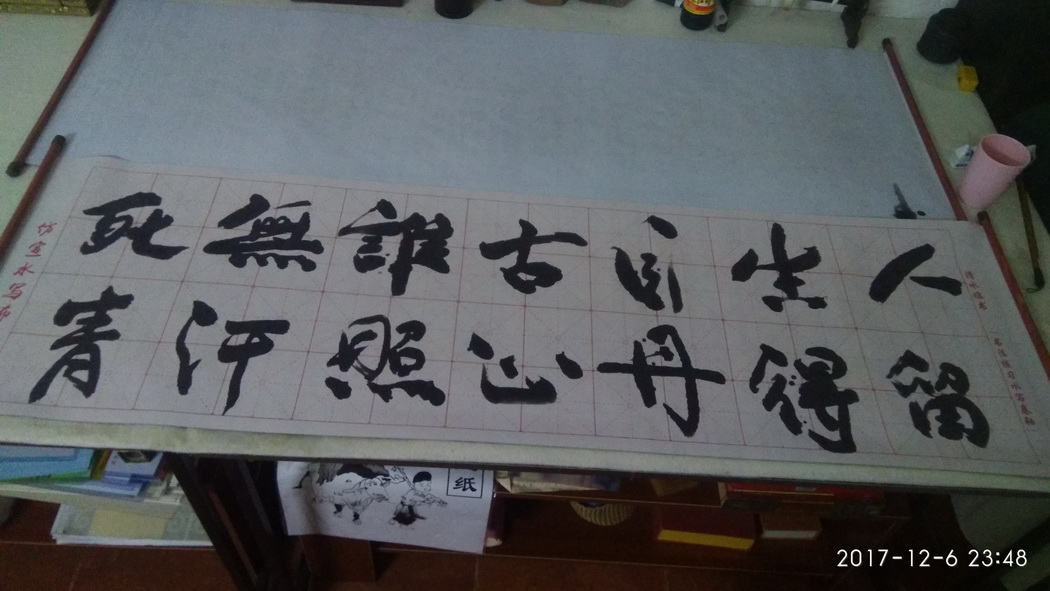 人生自古誰無死
留得丹心照汗青
仿宣水写布
纸
2017-12-6 23:48